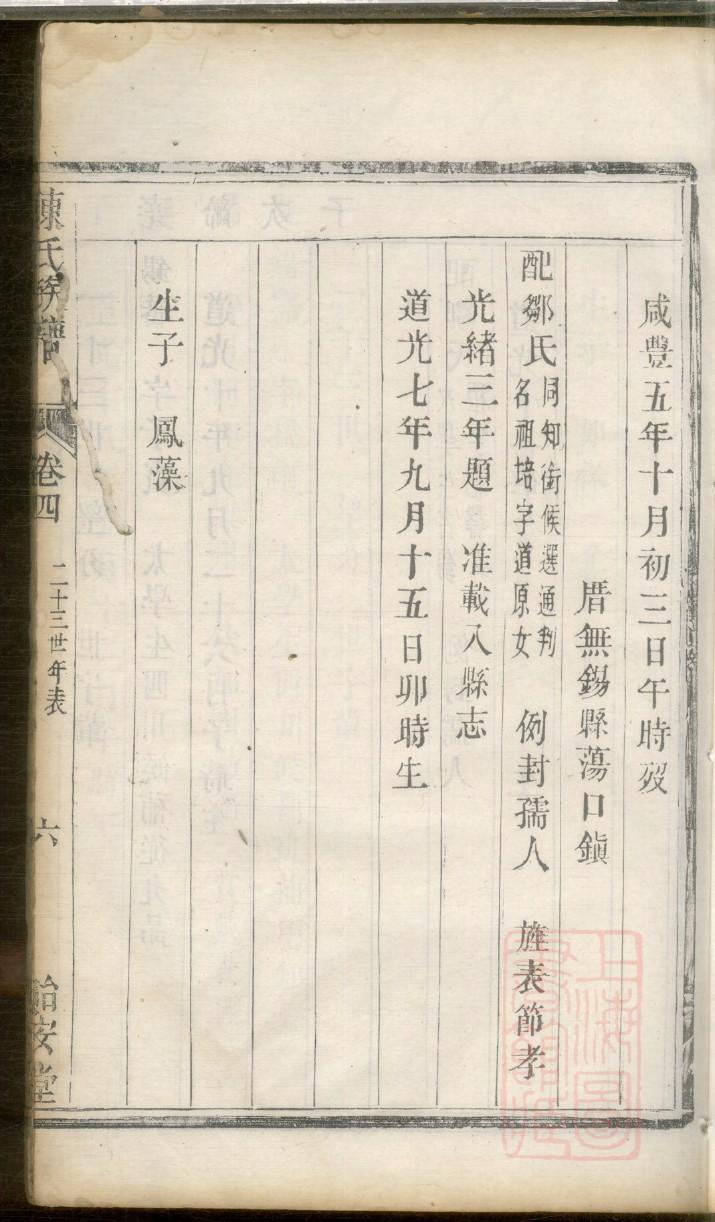 咸豐五年十月初三日午時歿
厝無錫縣蕩口鎮
配鄒氏同知銜候選通判名祖培字道原女 例封孺人 旌表節孝
光緒三年題 准載入縣志
道光七年九月十五日卯時生
生子 鳳藻
陳氏族譜 卷四 二十三世年表 六 怡安堂